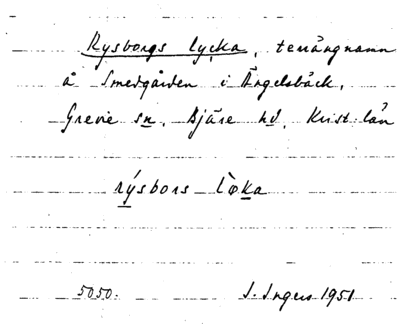 Rysborgs lycka, terrängnamn
å Smedgården i Ängelsbäck,
Grevie sn, Bjäre hd, Krist. län
rýsbors lò̵ka
5050. I. Ingers 1951